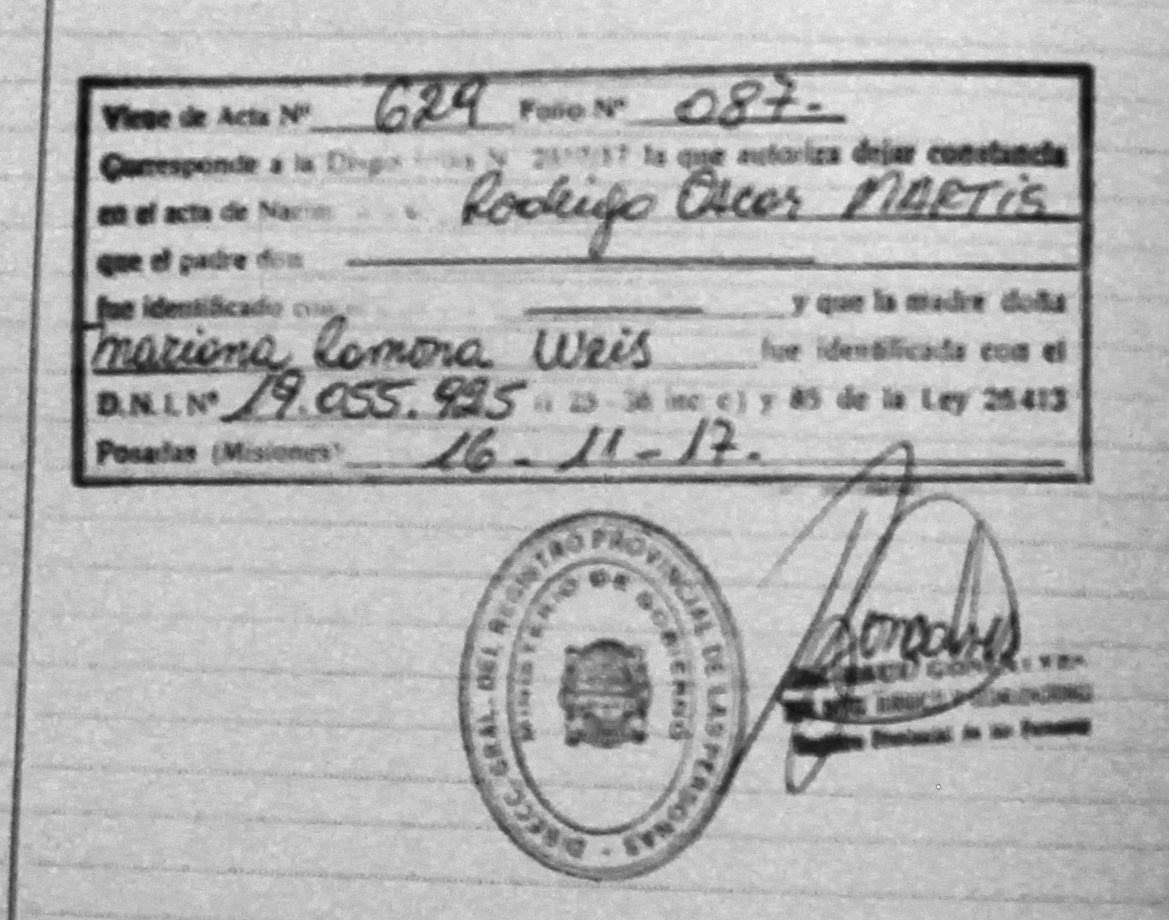 Viene de Acta Nº 629 Folio Nº 087.-
Corresponde a la la que autoriza dejar constancia
en el acta de Rodrigo Oscar MARTIS
que el padre don
fue identificado y que la madre doña
mariana Ramona Weis fue identificada con el
D.N.I. Nº 19.055.925 25 - 36 inc c) y 85 de la Ley 26413
Posadas (Misiones) 16 - 11 - 17.
DIRECC. GRAL. DEL REGISTRO PROVINCIAL DE LAS PERSONAS -
MINISTERIO DE GOBIERNO
Registro Provincial de las Personas